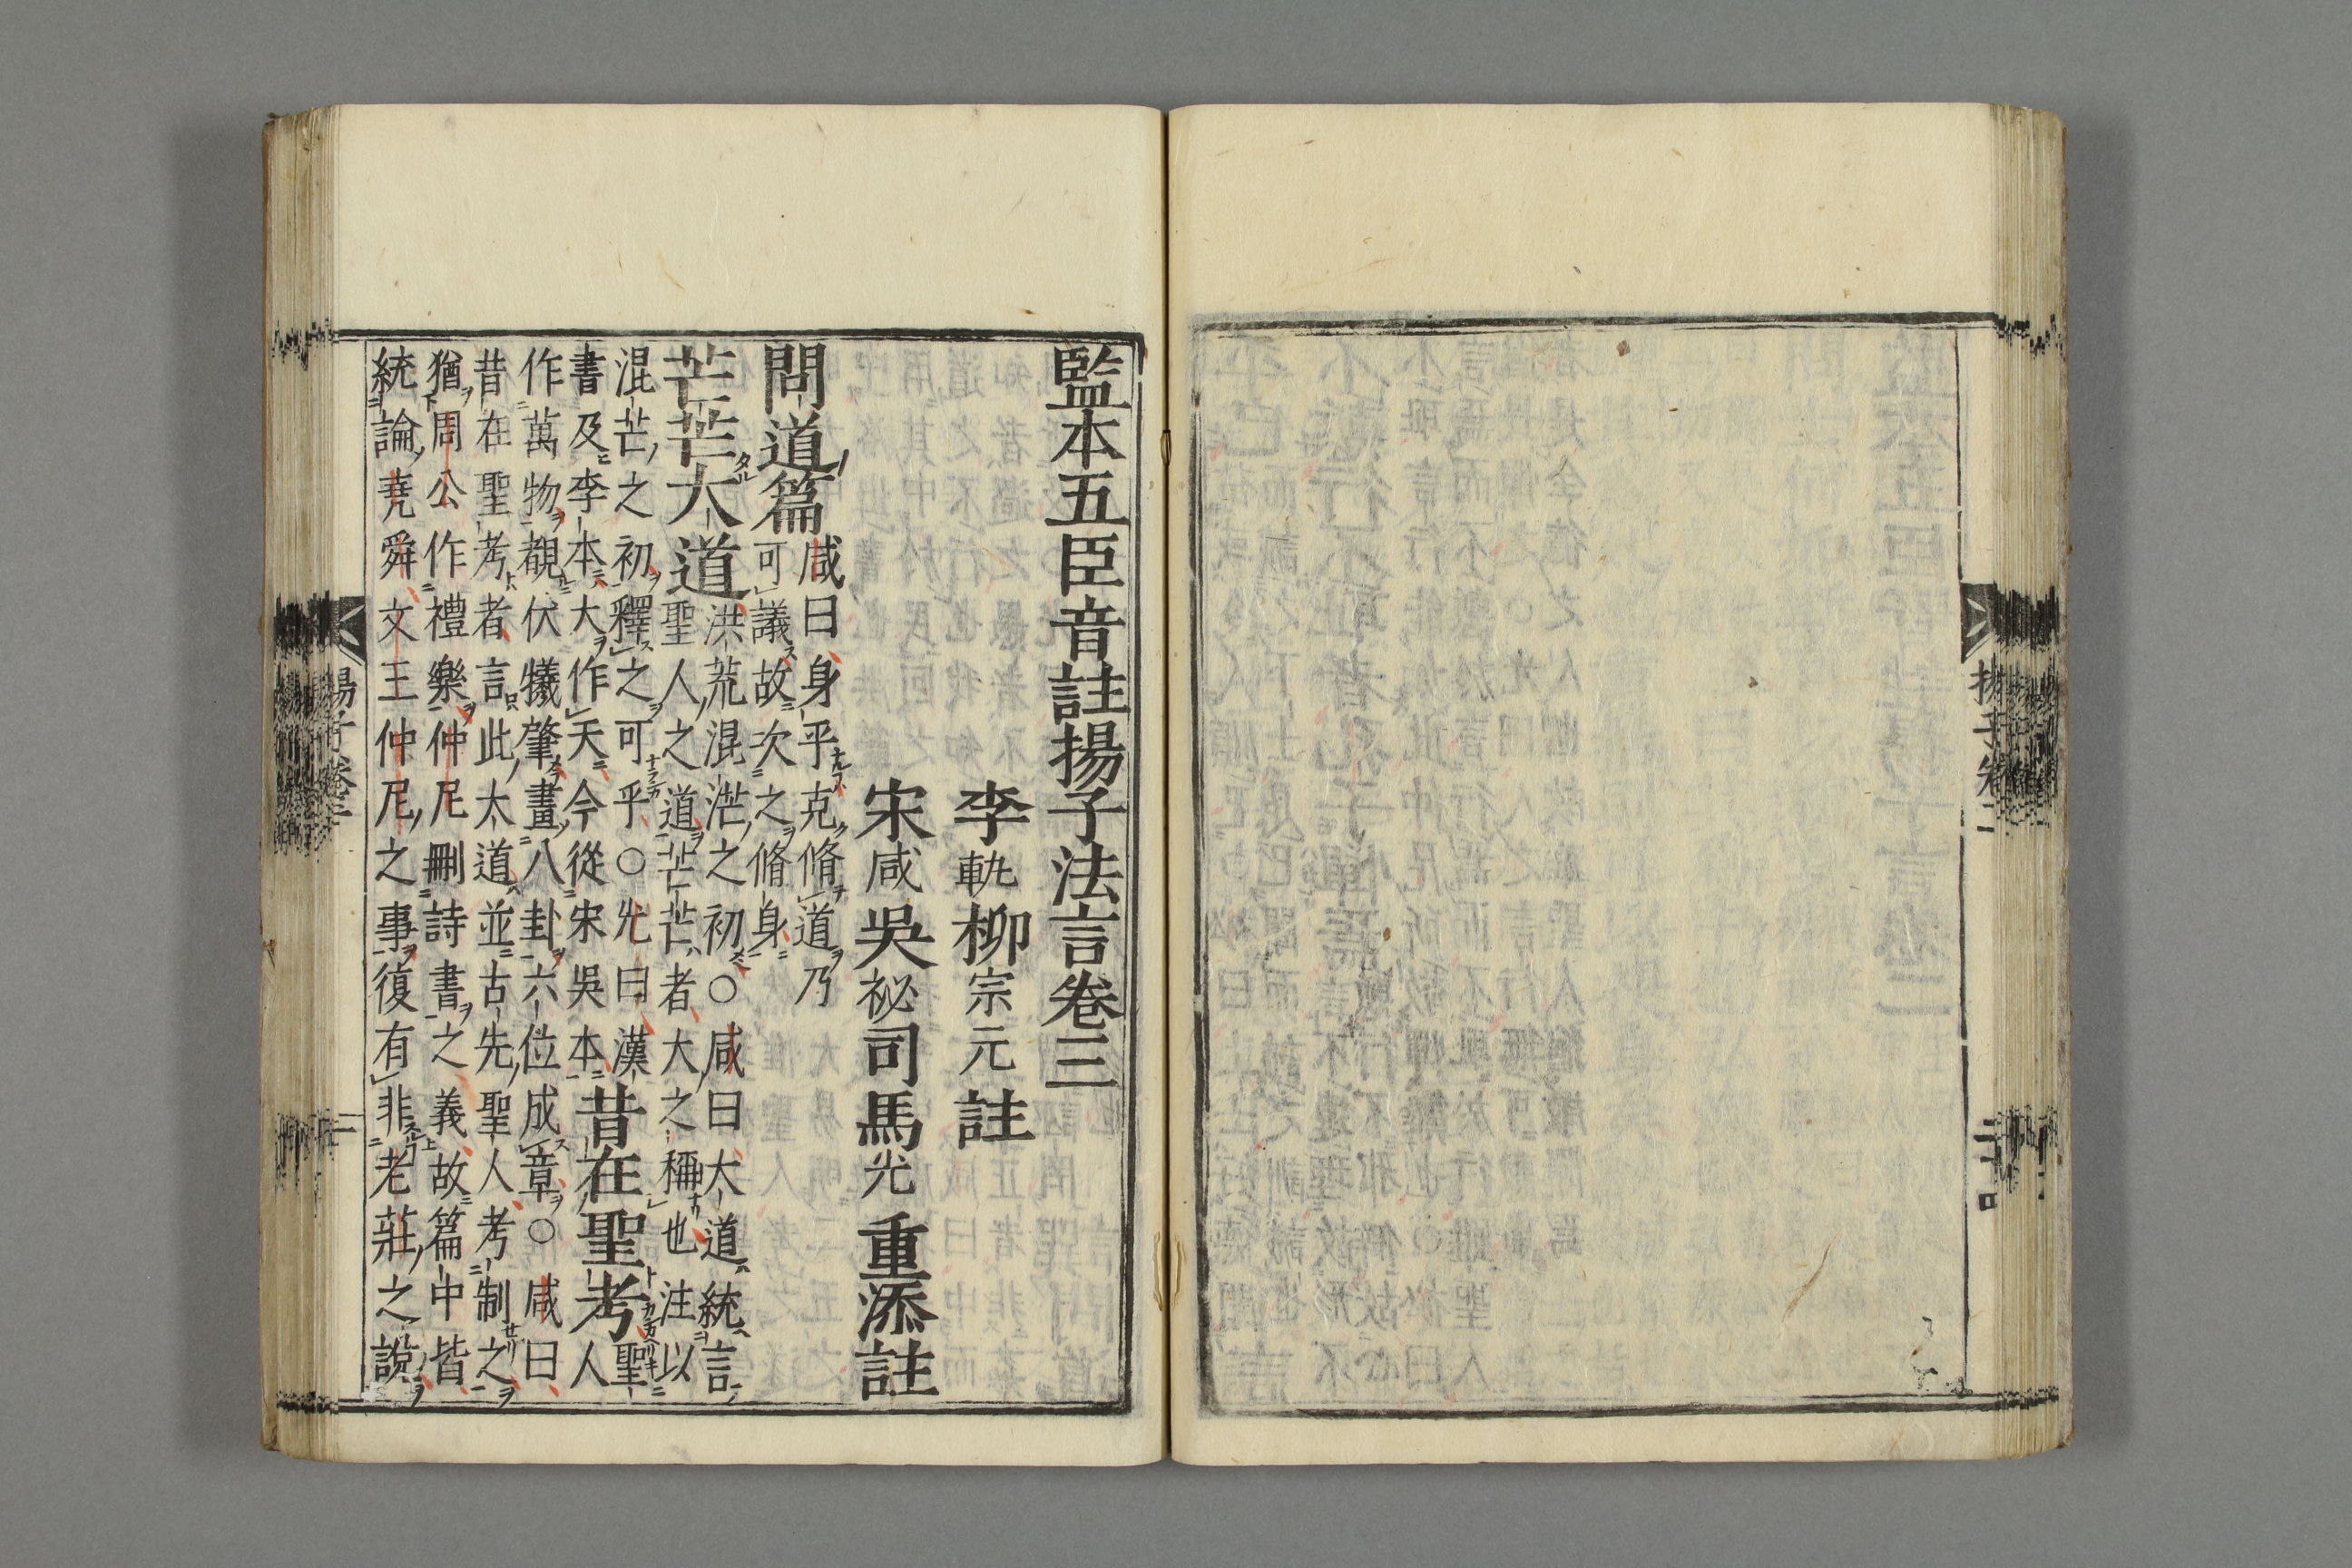 監本五臣音註揚子法言卷三
李軌柳宗元註
宋咸吳祕司馬光重添註
問道篇
咸曰身乎克脩道乃
可議故次之脩身
芒芒大道
洪荒混茫之初○咸曰大道統言
聖人之道芒芒者大之稱也注以
混芒之初釋之可乎○光曰漢
書及李本大作天今從宋吳本
昔在聖考
聖
人
作萬物覩伏犧肇畫八卦六位成章○咸曰
昔在聖考者言此大道並古先聖人考制之
猶周公作禮樂仲尼刪詩書之義故篇中皆
統論堯舜文王仲尼之事復有非老莊之說
揚子卷三
一
揚子卷二